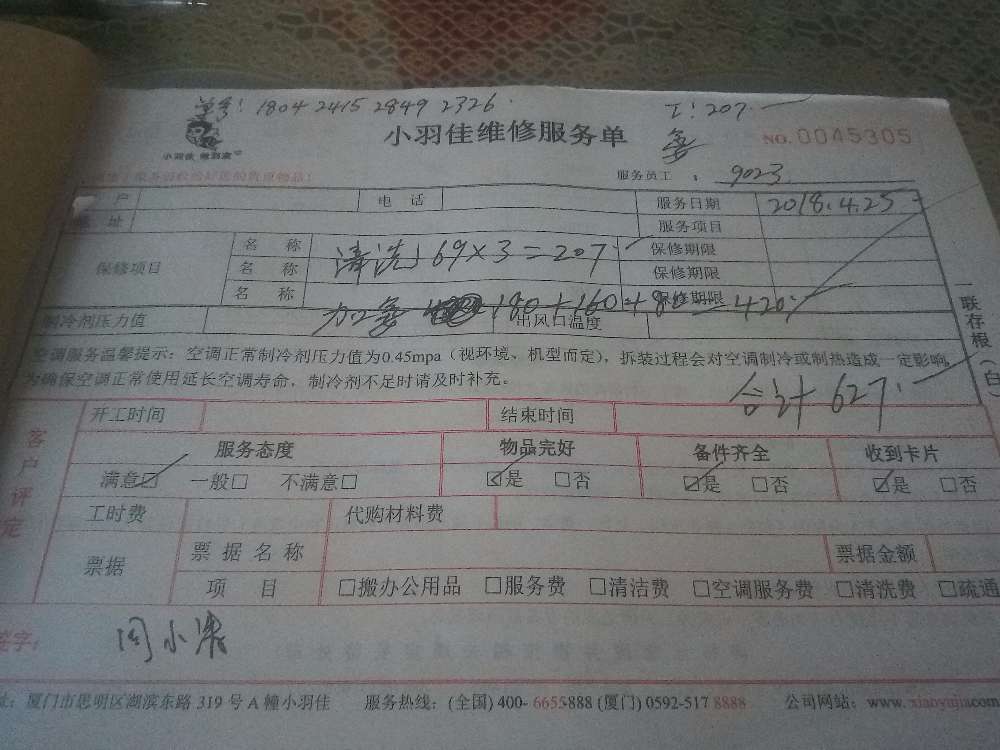 单号: 1804 2415 2849 2326
工: 207.
小羽佳维修服务单
NO. 0045305
小羽佳
服务员工: 9023
户 电话 服务日期 2018.4.25
址 服务项目
保修项目 名称 清洗 69×3=207. 保修期限
名称 保修期限
名称 180+160+80=420. 保修期限
制冷剂压力值 出风口温度
空调服务温馨提示：空调正常制冷剂压力值为0.45mpa（视环境、机型而定），拆装过程会对空调制冷或制热造成一定影响
为确保空调正常使用延长空调寿命，制冷剂不足时请及时补充。
合计 627.
一联存根（白
客户评定
开工时间 结束时间
服务态度 物品完好 备件齐全 收到卡片
满意☑ 一般□ 不满意□ ☑是 □否 ☑是 □否 ☑是 □否
工时费 代购材料费
票据 票据名称 票据金额
项目 □搬办公用品 □服务费 □清洁费 □空调服务费 □清洗费 □疏通
签字:
址：厦门市思明区湖滨东路 319 号 A 幢小羽佳 服务热线：(全国) 400- 6655-888 (厦门) 0592-517 8888 公司网站：www. xiaoyujia.com